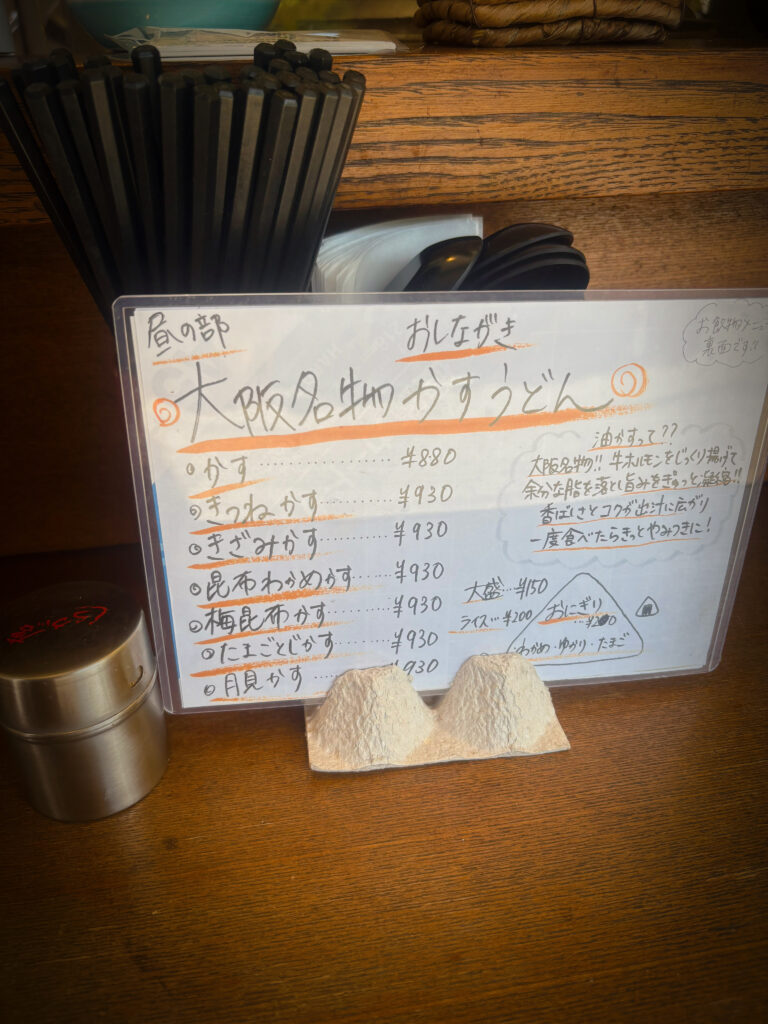 昼の部
おしながき
お飲物メニュー
裏面です!!
大阪名物かすうどん
かす………………¥880
きつねかす…………¥930
きざみかす…………¥930
昆布わかめかす……¥930
梅昆布かす…………¥930
たまごとじかす……¥930
月見かす…………¥930
油かすって??
大阪名物!! 牛ホルモンをじっくり揚げて
余分な脂を落とし旨みをぎゅっと凝縮!!
香ばしさとコクが出汁に広がり
一度食べたらきっとやみつきに!
大盛…¥150
ライス…¥200
おにぎり
…¥200
・わかめ・ゆかり・たまご